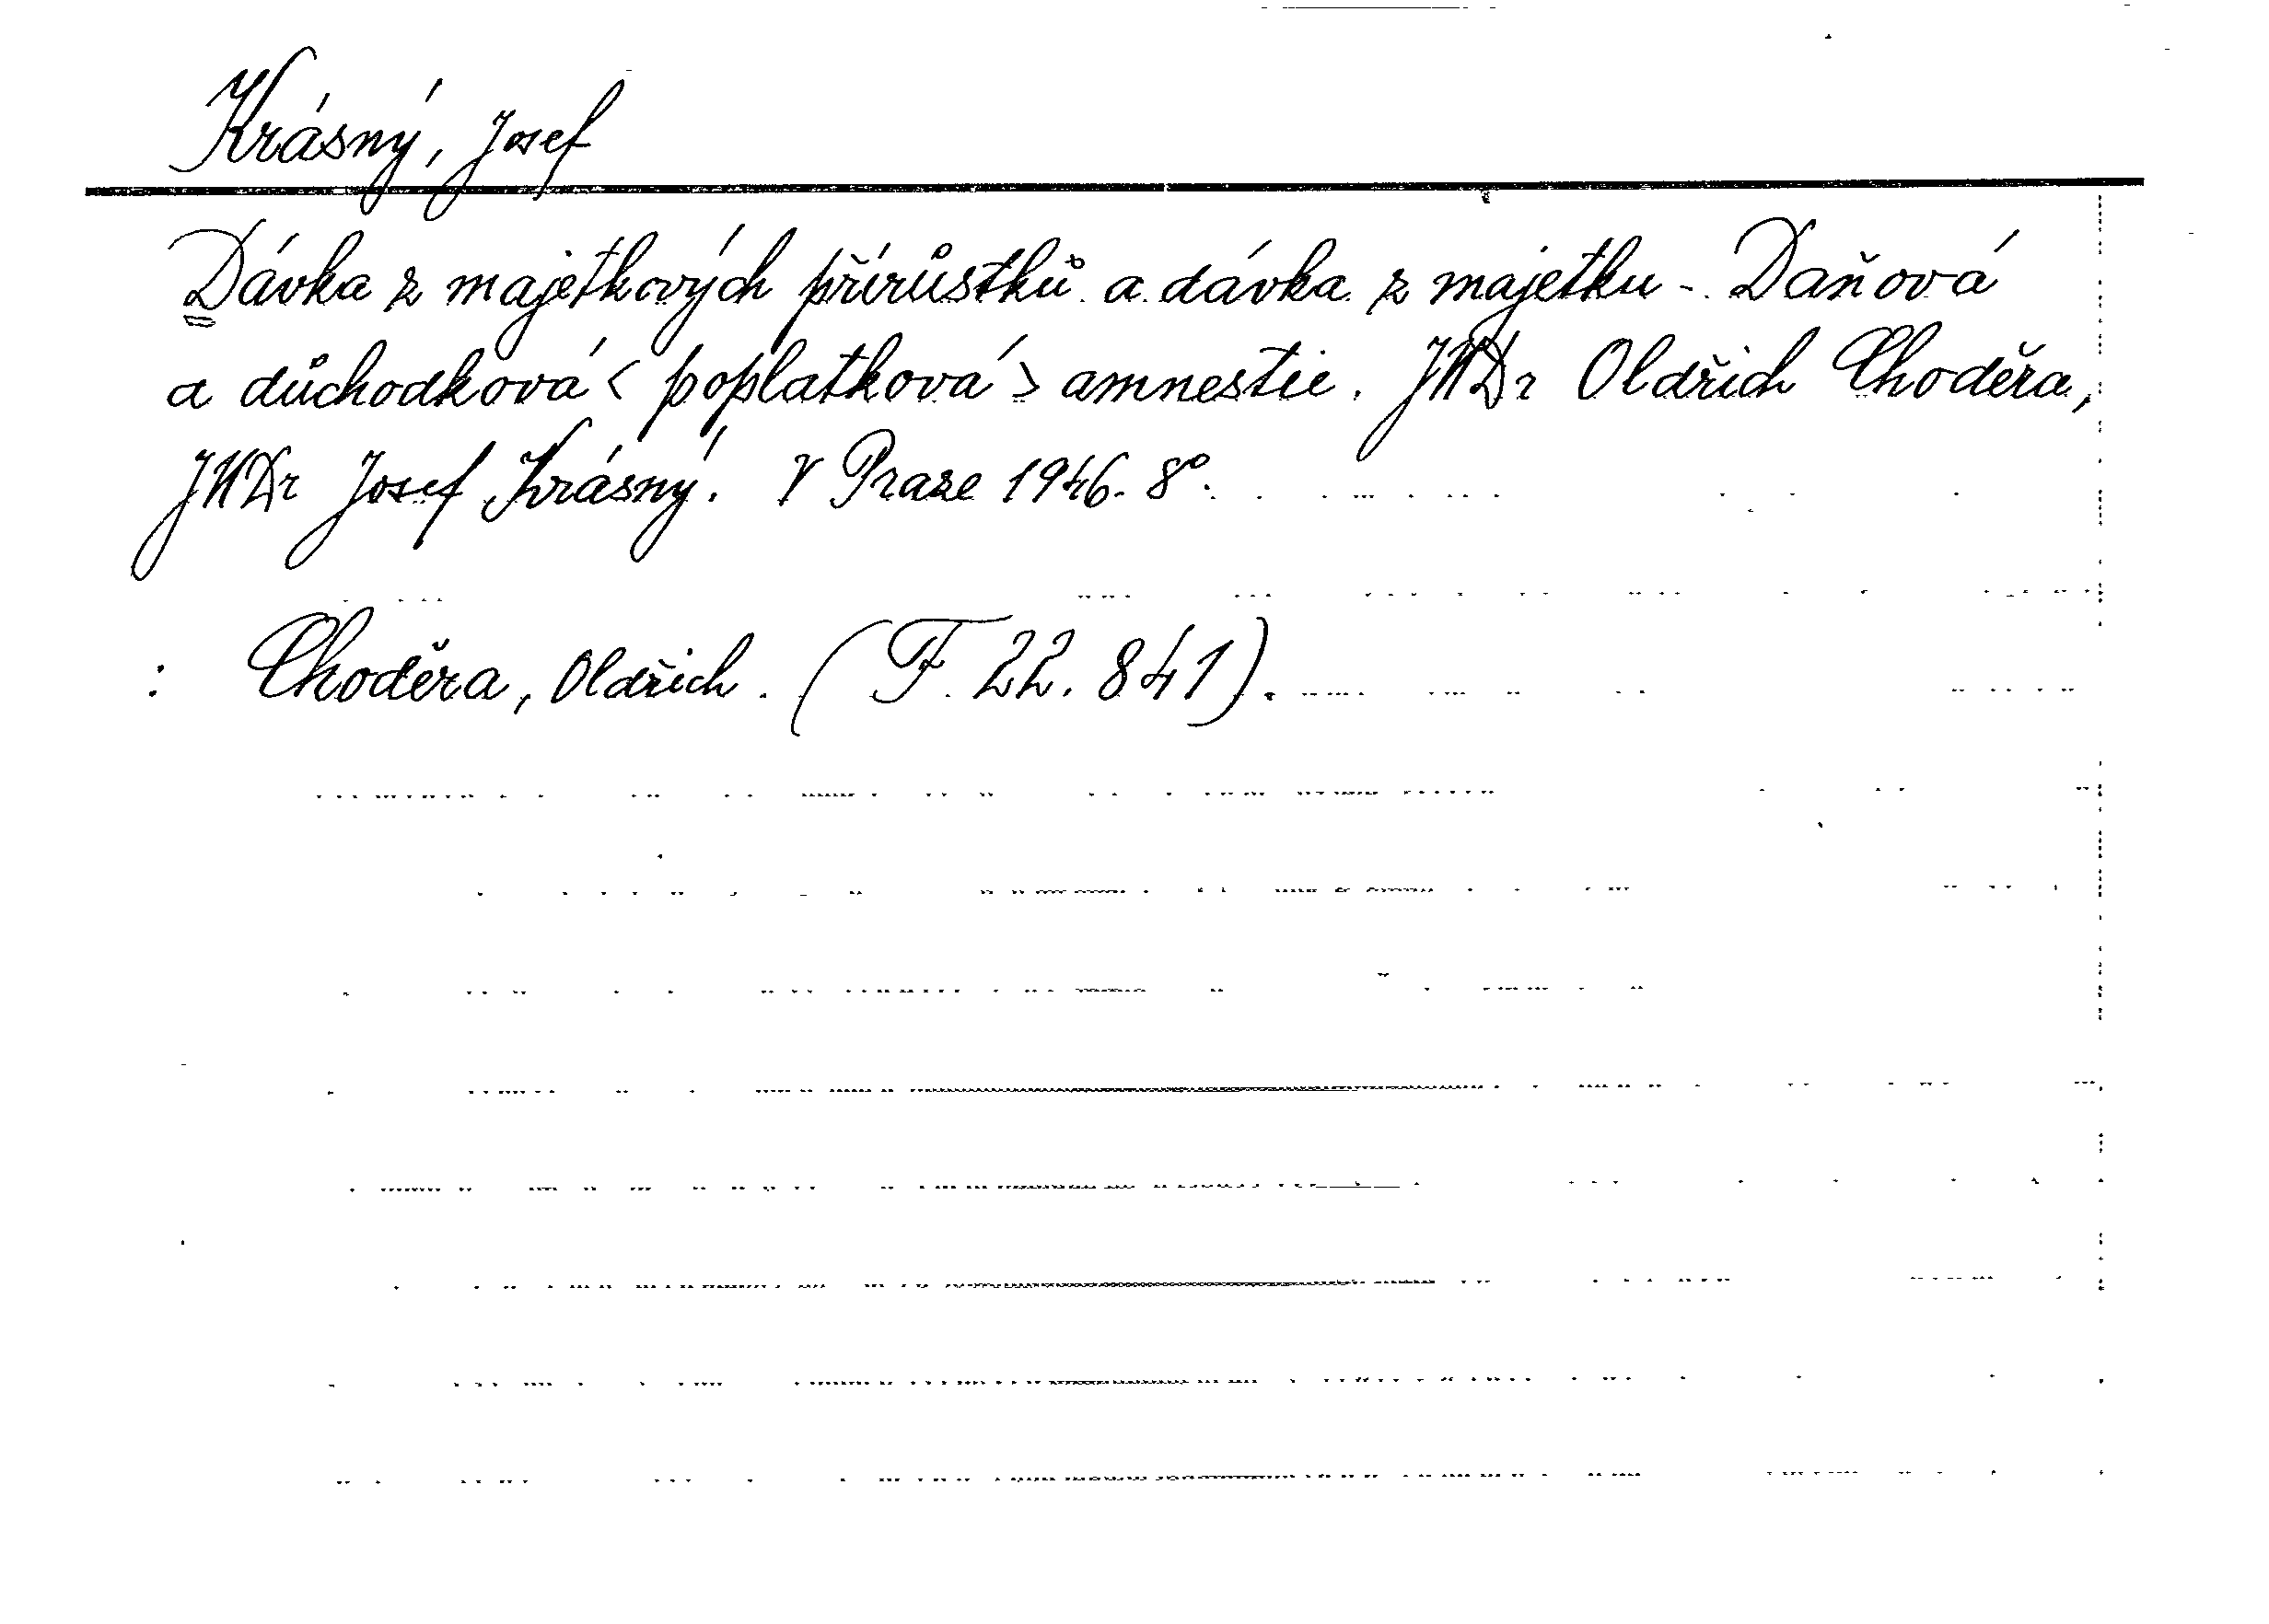 Krásný, Josef
Dávka z majetkových přírůstků a dávka z majetku - Daňová
a důchodková < poplatková > amnestie. JUDr Oldřich Choděra,
JUDr Josef Krásný. V Praze 1946. 8°.
: Choděra, Oldřich. (F 22. 841).